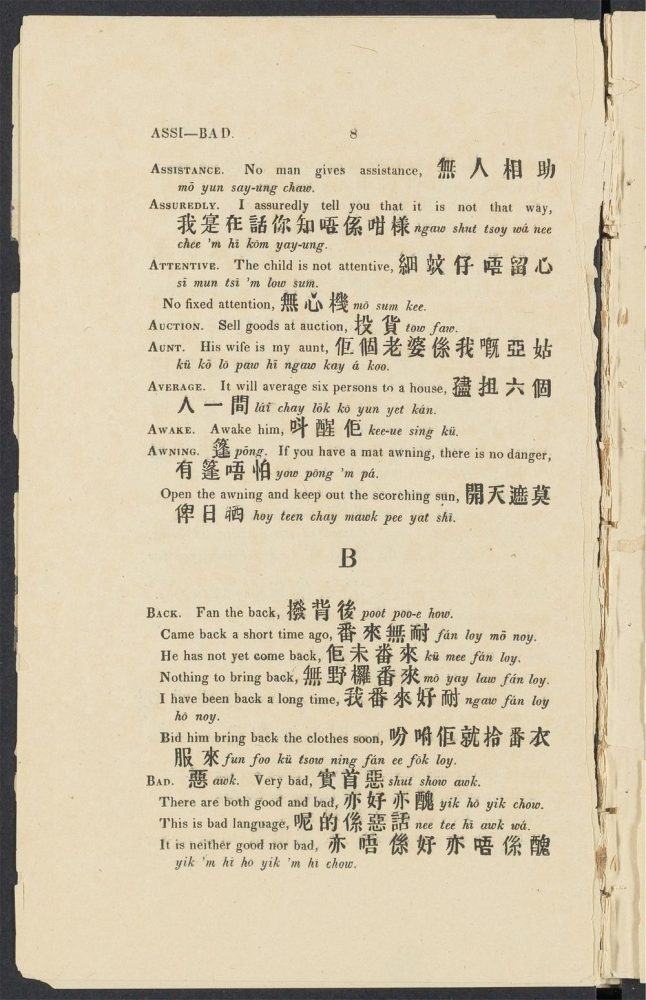 ASSI—BAD. 8
ASSISTANCE. No man gives assistance, 無人相助
mō yun say-ung chaw.
ASSUREDLY. I assuredly tell you that it is not that way,
我寔在話你知唔係咁樣 ngaw shut tsoy wá nee
chee 'm hī kōm yay-ung.
ATTENTIVE. The child is not attentive, 細蚊仔唔留心
sī mun tsī 'm low sum.
No fixed attention, 無心機 mō sum kee.
AUCTION. Sell goods at auction, 投貨 tow faw.
AUNT. His wife is my aunt, 佢個老婆係我嘅亞姑
kü kō lō paw hī ngaw kay á koo.
AVERAGE. It will average six persons to a house, 扭六個
人一間 láī chay lōk kō yun yet kán.
AWAKE. Awake him, 叫醒佢 kee-ue sing kü.
AWNING. 篷 pōng. If you have a mat awning, there is no danger,
有篷唔怕 yow pōng 'm pá.
Open the awning and keep out the scorching sun, 開天遮莫
俾日晒 hoy teen chay mawk pee yat shī.
B
BACK. Fan the back, 撥背後 poot poo-e how.
Came back a short time ago, 番來無耐 fán loy mō noy.
He has not yet come back, 佢未番來 kü mee fán loy.
Nothing to bring back, 無野攞番來 mō yay law fán loy.
I have been back a long time, 我番來好耐 ngaw fán loy
hō noy.
Bid him bring back the clothes soon, 吩咐佢就拎番衣
服來 fun foo kü tsow ning fán ee fōk loy.
BAD. 惡 awk. Very bad, 實首惡 shut show awk.
There are both good and bad, 亦好亦醜 yik hō yik chow.
This is bad language, 呢的係惡話 nee tee hī awk wá.
It is neither good nor bad, 亦唔係好亦唔係醜
yik 'm hī hō yik 'm hī chow.